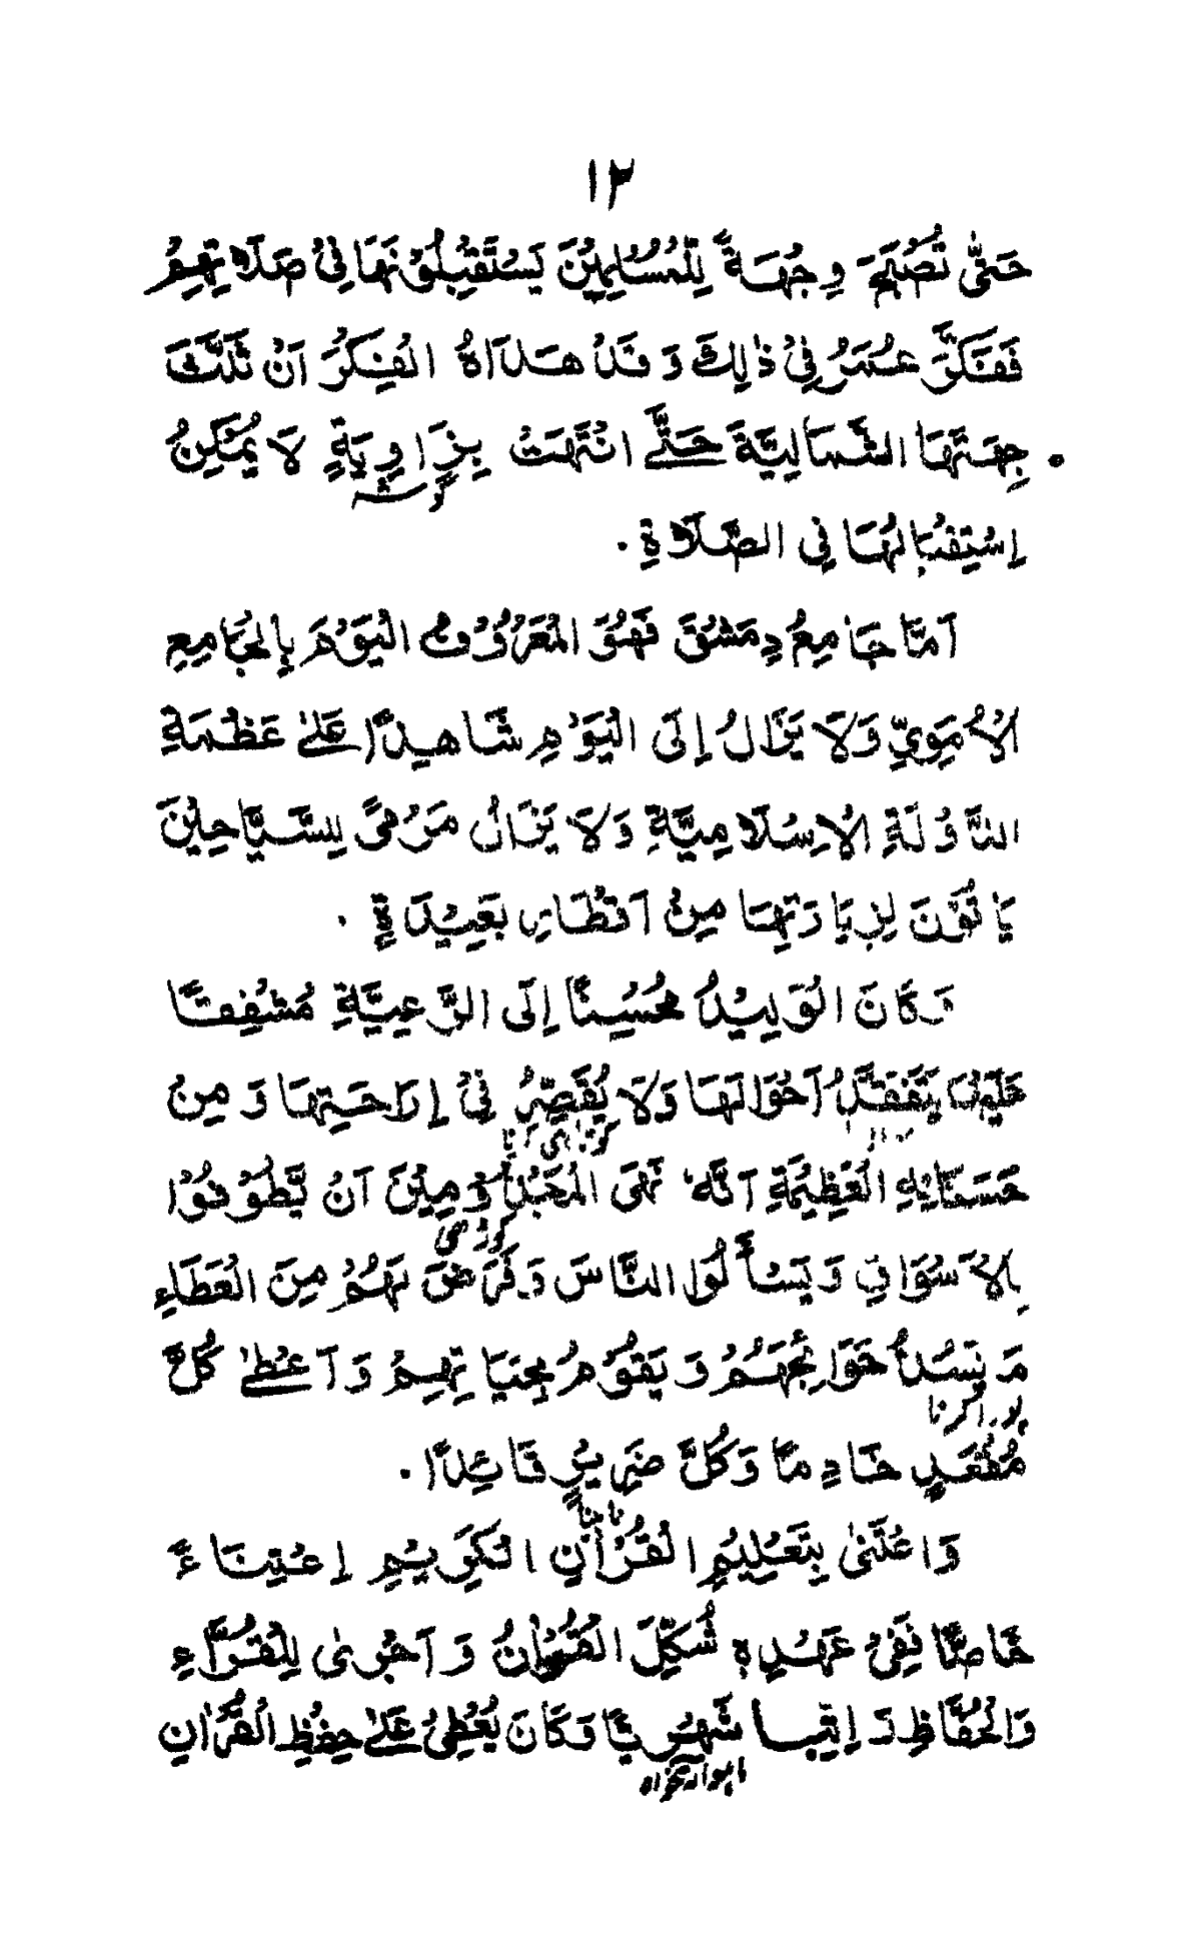 ١٢
حَتّٰى تُصْبِحَ وِجْهَةً لِّلْمُسْلِمِيْنَ يَسْتَقْبِلُوْنَهَا فِيْ صَلَاتِهِمْ
فَفَكَّرَ عُمَرُ فِيْ ذٰلِكَ وَقَدْ هَدَاهُ الْفِكْرُ اَنْ ثَلَّثَ
جِهَتَهَا الشَّمَالِيَّةَ حَتّٰے انْتَهَتْ بِزَاوِيَةٍ لَا يُمْكِنُ
گوشہ
اِسْتِقْبَالُهَا فِي الصَّلَاةِ .
اَمَّا جَامِعُ دِمَشْقَ فَهُوَ الْمَعْرُوْفُ الْيَوْمَ بِالْجَامِعِ
الْاُمَوِيِّ وَلَا يَزَالُ اِلَى الْيَوْمِ شَاهِدًا عَلٰے عَظْمَةِ
الدَّوْلَةِ الْاِسْلَامِيَّةِ وَلَا يَزَالُ مَرْمًى لِلسَّيَّاحِيْنَ
يَاتُوْنَ لِزِيَارَتِهَا مِنْ اَقْطَارٍ بَعِيْدَةٍ .
وَكَانَ الْوَلِيْدُ مُحْسِنًا اِلَى الرَّعِيَّةِ مُشْفِقًا
عَلَيْهَا يَتَفَقَّدُ اَحْوَالَهَا وَلَا يُقَصِّرُ فِيْ اِرَاحَتِهَا وَمِنْ
کوتاہی کرنا
حَسَنَاتِهِ الْعَظِيْمَةِ اَنَّهٗ نَهَى الْمَجْذُوْمِيْنَ اَنْ يَّطُوْفُوْا
کوڑھی
بِالْاَسْوَاقِ وَيَسْأَلُوا النَّاسَ وَفَرَضَ لَهُمْ مِنَ الْعَطَاءِ
مَا يَسُدُّ حَوَائِجَهُمْ وَيَقُوْمُ بِحَيَاتِهِمْ وَاَعْطٰے كُلَّ
پورا کرنا
مُقْعَدٍ خَادِمًا وَكُلَّ ضَرِيْرٍ قَائِدًا .
نابینا
وَاعْتَنٰى بِتَعْلِيْمِ الْقُرْاٰنِ الْكَرِيْمِ اِعْتِنَاءً
خَاصًّا فَفِيْ عَهْدِهٖ شُكِّلَ الْقُرْاٰنُ وَاَجْرٰى لِلْقُرَّاءِ
وَالْحُفَّاظِ رَاتِبًا شَهْرِيًّا وَكَانَ يُعْطِيْ عَلٰے حِفْظِ الْقُرْاٰنِ
ماہوار تنخواہ